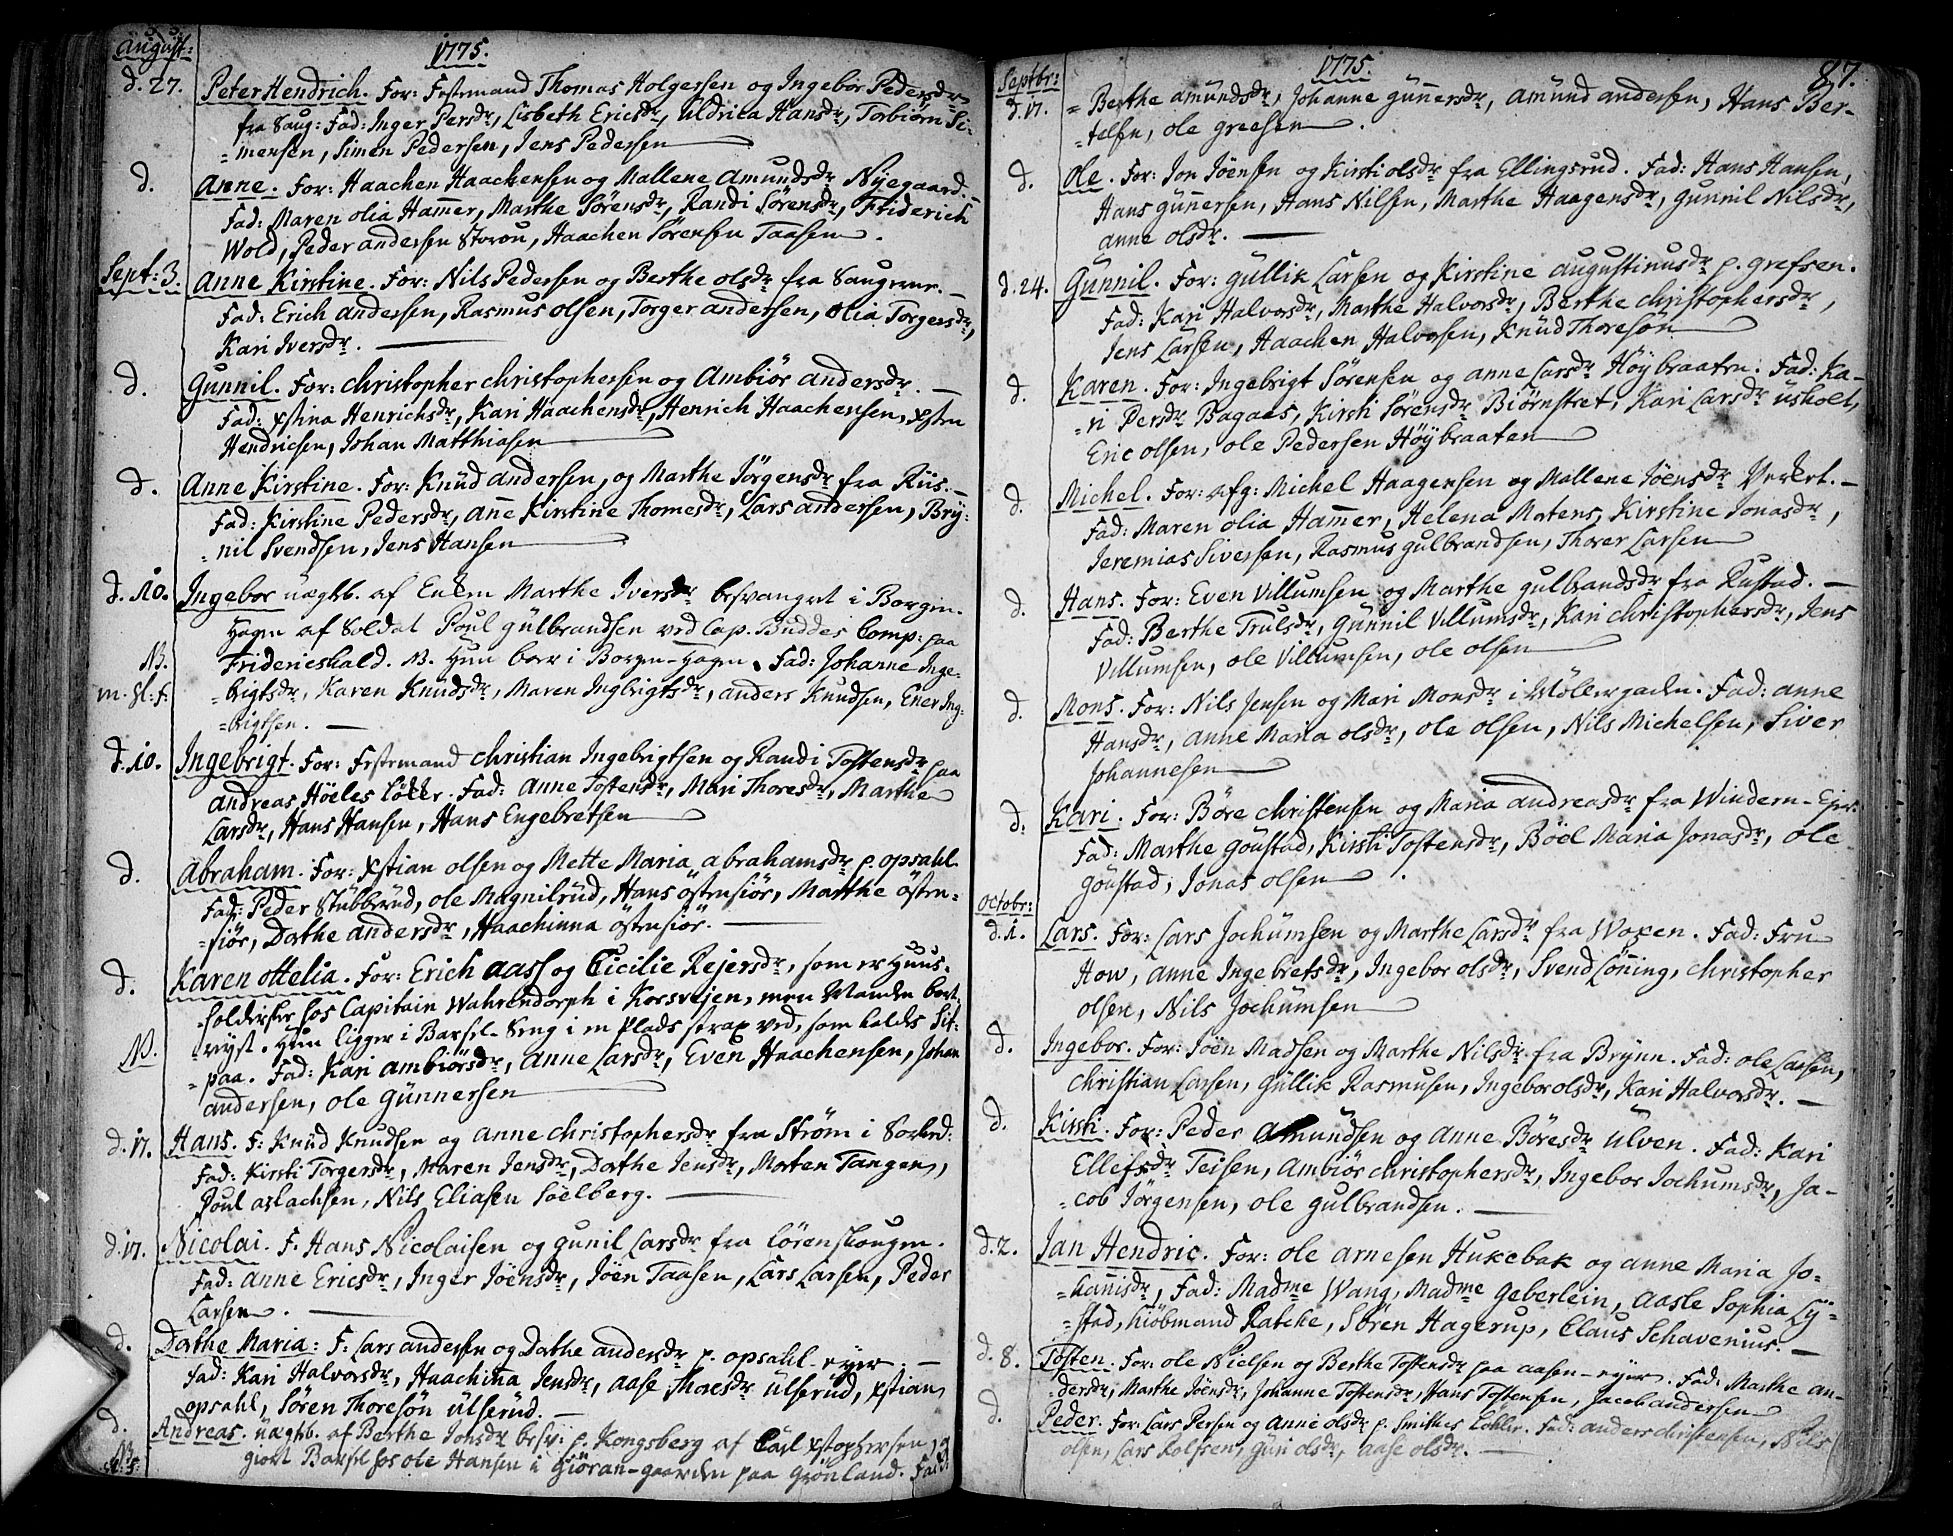 August:
1775.
d. 27. Peter Hendrich. For: Festemand Thomas Holgersen og Ingebor Pedersdr
fra Saug: Fad: Inger Persdr, Lisbeth Ericsdr, Uldrica Hansdr, Torbiørn Si-
-mensen, Simen Pedersen, Jens Pedersen
d. Anne. For: Haachen Haachensen og Mallene Amundsdr Nyegaard. -
Fad: Maren Olia Hamer, Marthe Sørensdr, Randi Sørensdr, Friderich
Wold, Peder Andersen Storøn, Haachen Sørensen Taasen.
Sept: 3. Anne Kirstine. For: Nils Pedersen og Berthe Olsdr fra Saugerne. -
Fad: Erich Andersen, Rasmus Olsen, Torger Andersen, Olia Torgersdr,
Kari Iversdr.
d. Gunnil. For: Christopher Christophersen og Ambiør Andersdr. -
Fad: Xstina Henrichsdr, Kari Haachensdr, Henrich Haachensen, Xsten
Hendricsen, Johan Matthiasen
d. Anne Kirstine. For: Knud Andersen, og Marthe Jørgensdr fra Riis. -
Fad: Kirstine Pedersdr, Ane Kirstine Thomesdr, Lars Andersen, Bry-
-nil Svendsen, Jens Hansen
d. 10. Ingebor uægtb. af Enken Marthe Iversdr besvangret i Borgen-
Hagen af Soldat Poul Gulbrandsen ved Cap. Buddes Comp: paa
NB. Fridericshald. NB. Hun boer i Borgen-Hagen. Fad: Johanne Inge-
m. Sl: f: -brigtsdr, Karen Knudsdr, Maren Ingbrigtsdr, Anders Knudsen, Ener Ing-
-brigtsen. -
d. 10. Ingebrigt. For: Festemand Christian Ingebrigtsen og Randi Tostensdr paa
Andreas Høeles løkke. Fad: Anne Tostensdr, Mari Thoresdr, Marthe
Larsdr, Hans Hansen, Hans Engebretsen
d. Abraham. For: Xstian Olsen og Mette Maria Abrahamsdr p. Opsahl.
Fad: Peder Stubberud, Ole Magnilrud, Hans Østensiør, Marthe Østen-
-siør, Dorthe Andersdr, Haachinna Østensiør. -
d. Karen Ottelia. For: Erich Aass og Cicilie Rejersdr, som er Huus-
-holderske hos Capitain Wahrendorph i Korsvejen, men Manden bort-
NB. -rejst. Hun ligger i Barsel-Seng i en Plads strax ved, som kaldes Sit-
-paa. Fad: Kari Ambiørsdr, Anne Larsdr, Even Haachensen, Johan
Andersen, Ole Gunnersen
d. 17. Hans. F: Knud Knudsen og Anne Christophersdr fra Strøm i Sorked:
Fad: Kirsti Torgersdr, Maren Jensdr, Dorthe Jensdr, Morten Tangen,
Poul Aslachsen, Nils Eliasen Sølberg. -
d. 17. Nicolai. F. Hans Nicolaisen og Gunil Larsdr fra Lørenskougen.
Fad: Anne Ericsdr, Inger Jøensdr, Jøen Taasen, Lars Larsen, Peder
Larsen.
d. Dorthe Maria: F: Lars Andersen og Dorthe Andersdr p. Opsahl-ejer. -
Fad: Kari Halvorsdr, Haachina Jensdr, Aase Thoresdr Ulserud, Xstian
Opsahl, Søren Thoresøn Ulserud. -
d. Andreas. uægtb. af Berthe Jonsdr besv: p. Kongsberg af Carl Xstophersen,
NB. giort Barsel hos Ole Hansen i Giøran-gaarden paa Grønland. Fad:
87.
Septbr:
1775
d. 17. = Berthe Amundsdr, Johanne Gunersdr, Amund Andersen, Hans Ber-
-telsen, Ole Greesen.
d. Ole. For: Jon Jøensen og Kirsti Olsdr fra Ellingsrud. Fad: Hans Hansen,
Hans Gunersen, Hans Nilsen, Marthe Haagensdr, Gunnil Nilsdr,
Anne Olsdr. -
d. 24. Gunnil. For: Gullik Larsen og Kirstine Augustinusdr p. Grefsen.
Fad: Kari Halvorsdr, Marthe Halvorsdr, Berthe Christophersdr,
Jens Larsen, Haachen Halvorsen, Knud Thoresøn
d. Karen. For: Ingebrigt Sørensen og Anne Larsdr Høybraaten. Fad: Ka-
-ri Persdr Bagaas, Kirsti Sørensdr Biørnstret, Kari Larsdr Usholt,
Eric Olsen, Ole Pedersen Høybraaten
d. Michel. For: Afg: Michel Haagensen og Mallene Jøensdr Verket. -
Fad: Maren Olia Hamer, Helena Mortens, Kirstine Jonasdr,
Jeremias Siversen, Rasmus Gulbrandsen, Thorer Larsen
d. Hans. For: Even Villumsen og Marthe Gulbrandsdr fra Rustad. -
Fad: Berthe Trulsdr, Gunnil Villumsdr, Kari Christophersdr, Jens
Villumsen, Ole Villumsen, Ole Olsen
d. Mons. For: Nils Jensen og Mari Monsdr i Møllergaden. Fad: Anne
Hansdr, Anne Maria Olsdr, Ole Olsen, Nils Michelsen, Siver
Johannesen
d: Kari. For: Børe Christensen og Maria Andreasdr fra Windern-Ejer.
Fad: Marthe Goustad, Kirsti Tostensdr, Böel Maria Jonasdr, Ole
Goustad, Jonas Olsen.
Octobr:
d. 1. Lars. For: Lars Jochumsen og Marthe Larsdr fra Woxen. Fad: Fru
How, Anne Ingebretsdr, Ingebor Olsdr, Svend Löning, Christopher
Olsen, Nils Jochumsen
d. Ingebor. For: Jøen Madsen og Marthe Nilsdr fra Brynn. Fad: Ole Larsen,
Christian Larsen, Gullik Rasmusen, Ingebor Olsdr, Kari Halvorsdr. -
d. Kirsti. For: Peder Amundsen og Anne Børesdr Ulven. Fad: Kari
Ellefsdr Teisen, Ambiør Christophersdr, Ingebor Jochumsdr, Ja-
-cob Jørgensen, Ole Gulbrandsen. -
d. 2. Jan Hendric. For: Ole Arnesen Hukebak og Anne Maria Jo-
-hanisdr, Fad: Madme Wang, Madme Geberlein, Aasle Sophia Ly-
-stad, Kiøbmand Ratche, Søren Hagerup, Claus Schavenius. -
d. 8. Tosten. For: Ole Nielsen og Berthe Tostensdr paa Aasen-ejer. Fad: Marthe An-
-dersdr, Marthe Jøensdr, Johanne Tostensdr, Hans Tostensen, Jacob Andersen
d. Peder. For: Lars Persen og Anne Olsdr p. Smithes Løkke. Fad: Anders Christensen, Nils
Olsen, Lars Rolfsen, Guri Olsdr, Aase Olsdr. -